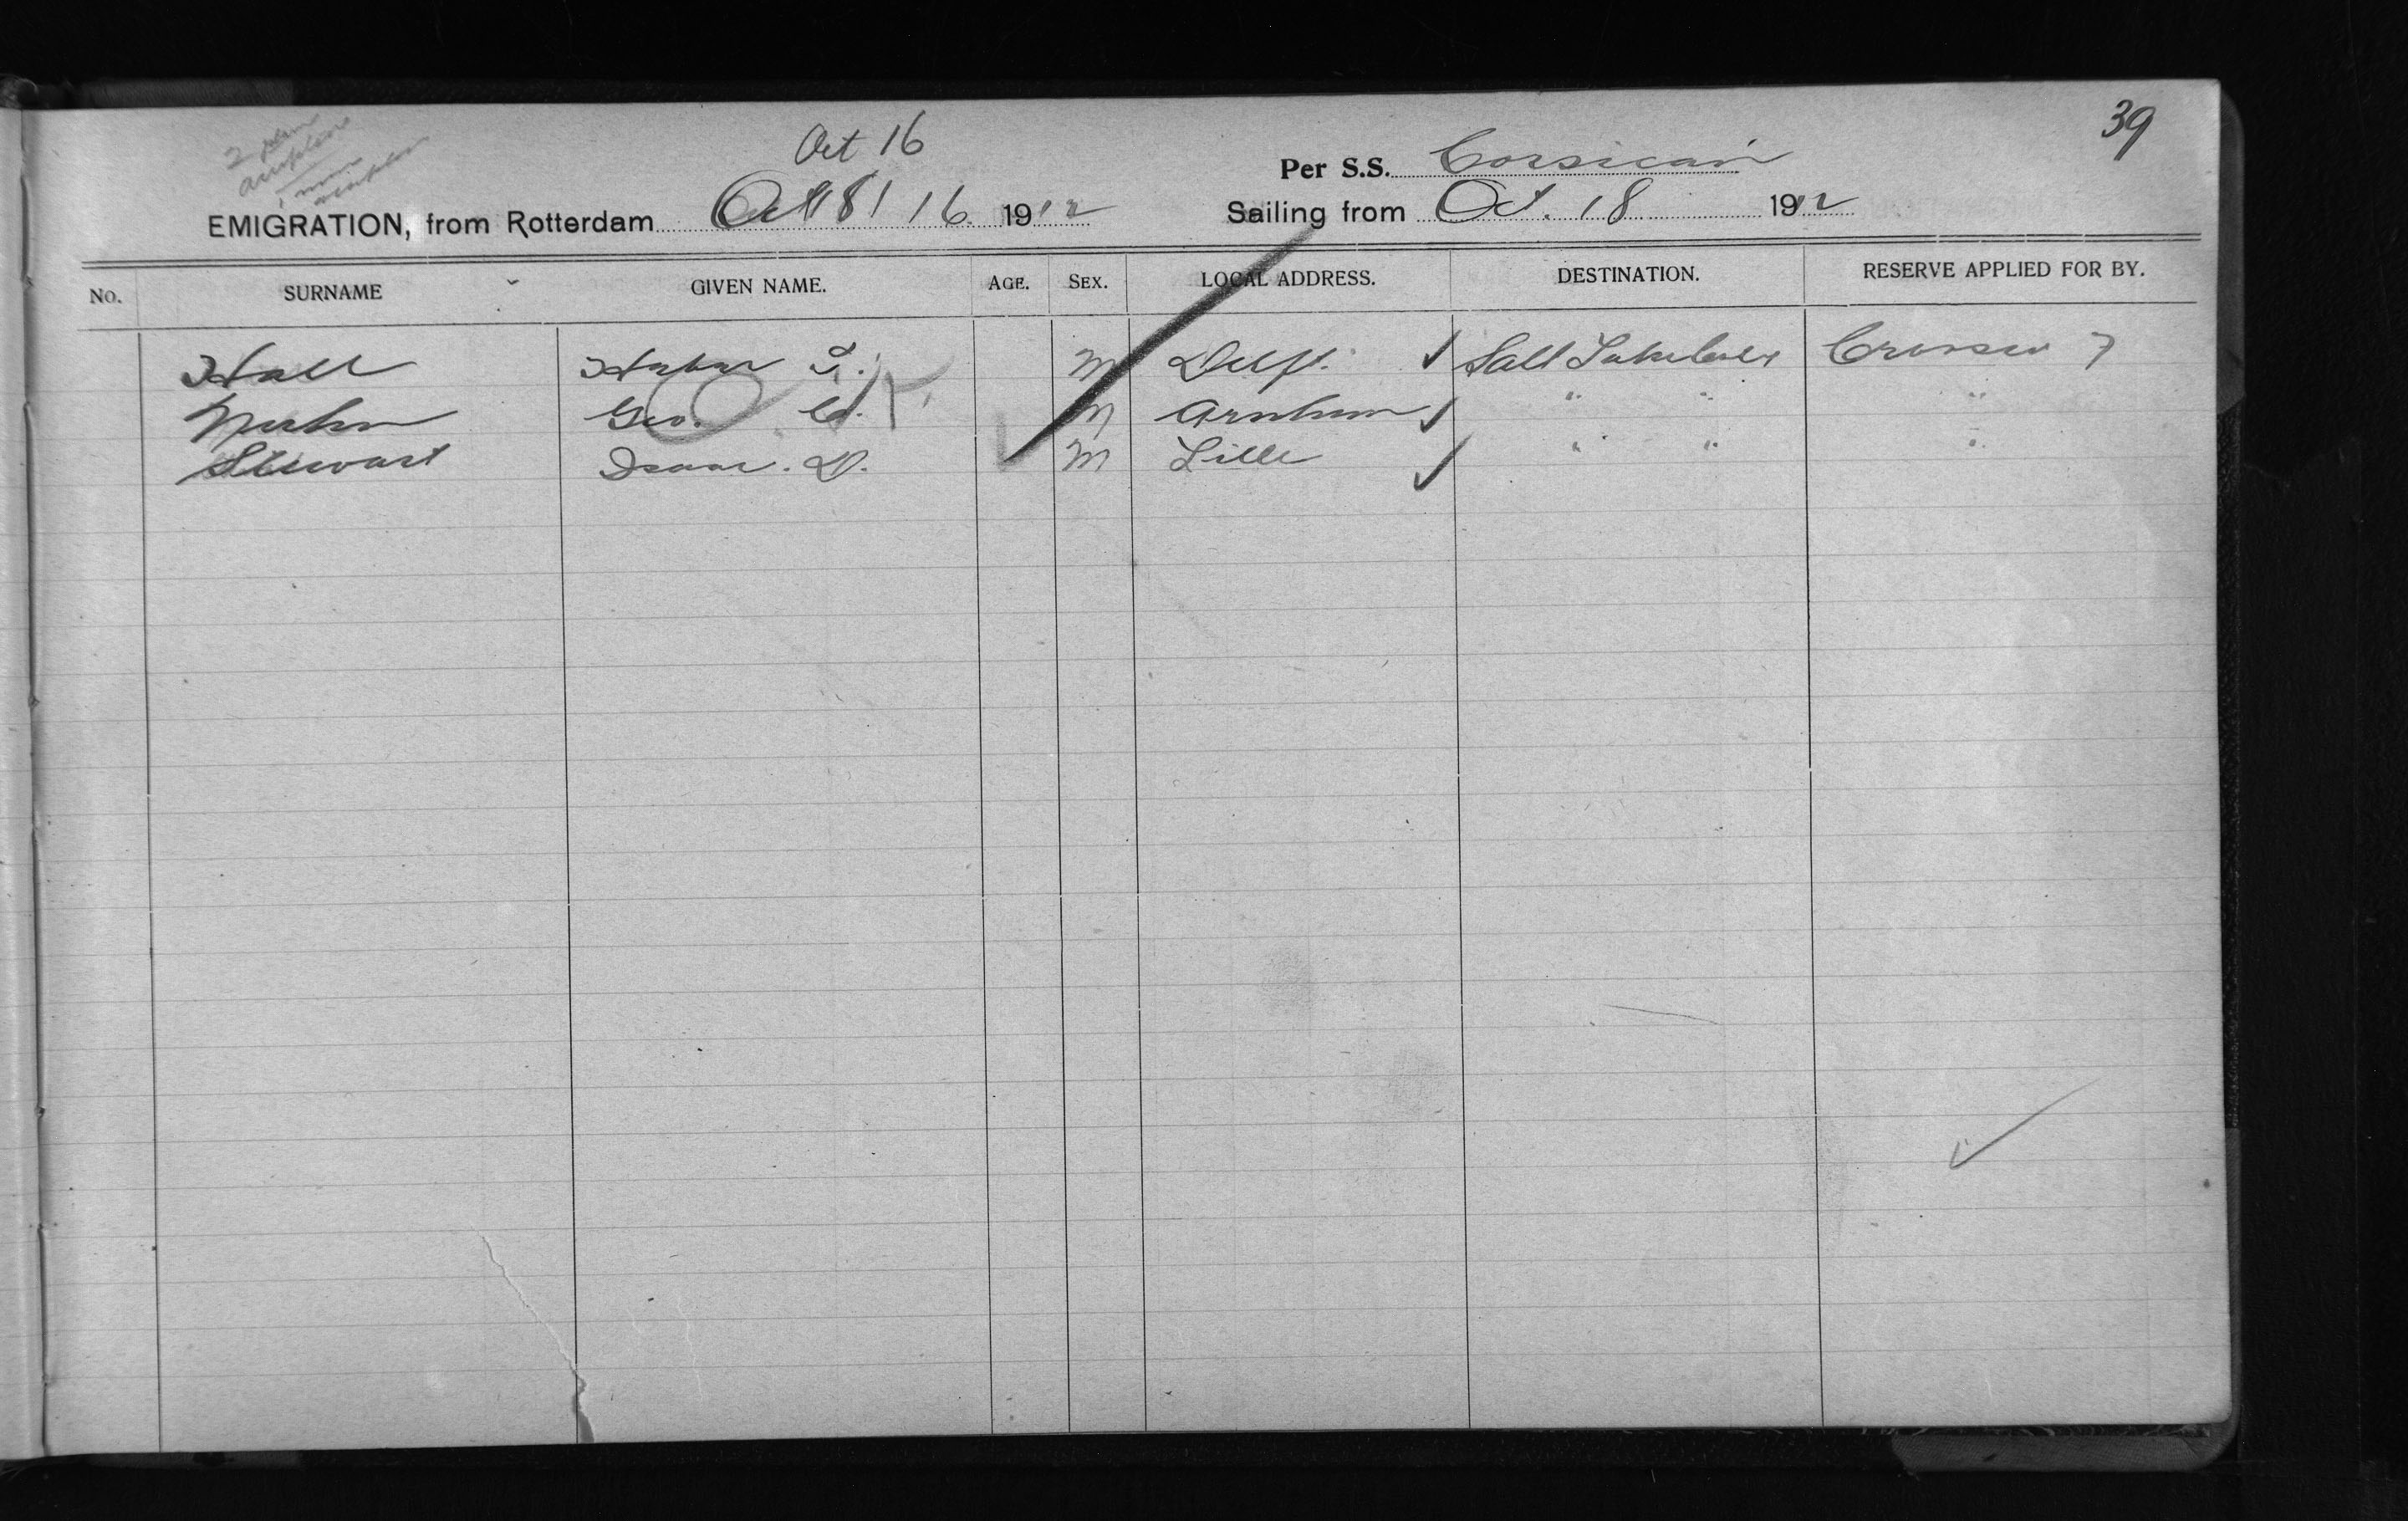 39
Oct 16
Per S.S. Corsican
EMIGRATION, from Rotterdam Oct 16 1912
Sailing from Oct. 18 1912
No. SURNAME GIVEN NAME. AGE. SEX. LOCAL ADDRESS. DESTINATION. RESERVE APPLIED FOR BY.
Hall Heber T. M Delft. ✓ Salt Lake City
Geo. Ed. M Arnhem ✓ " " "
Stewart Isaac. D. M Lille ✓ " " "